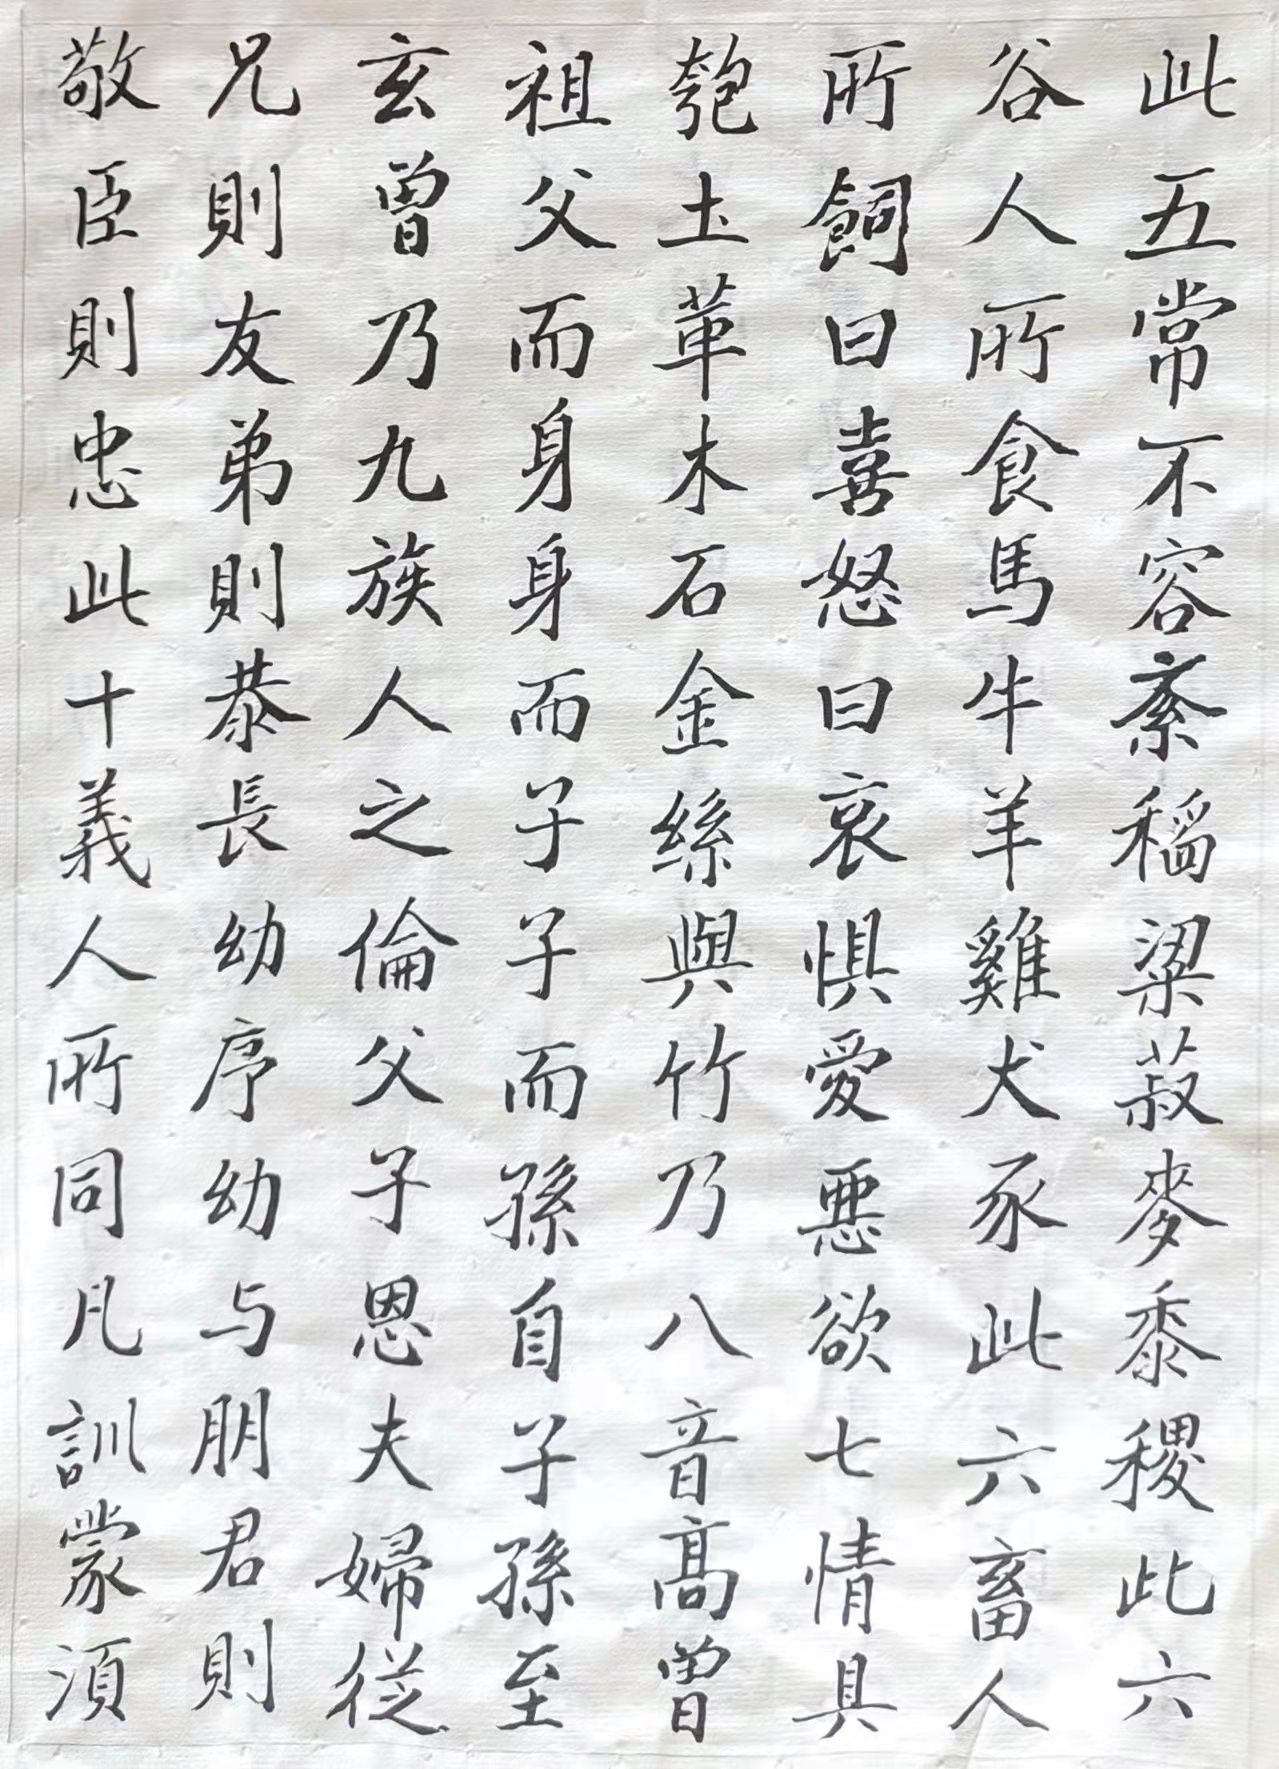 此五常不容紊稻粱菽麥黍稷此六
谷人所食馬牛羊雞犬豕此六畜人
所飼曰喜怒曰哀懼愛惡欲七情具
匏土革木石金絲與竹乃八音高曾
祖父而身身而子子而孫自子孫至
玄曾乃九族人之倫父子恩夫婦從
兄則友弟則恭長幼序幼与朋君則
敬臣則忠此十義人所同凡訓蒙須